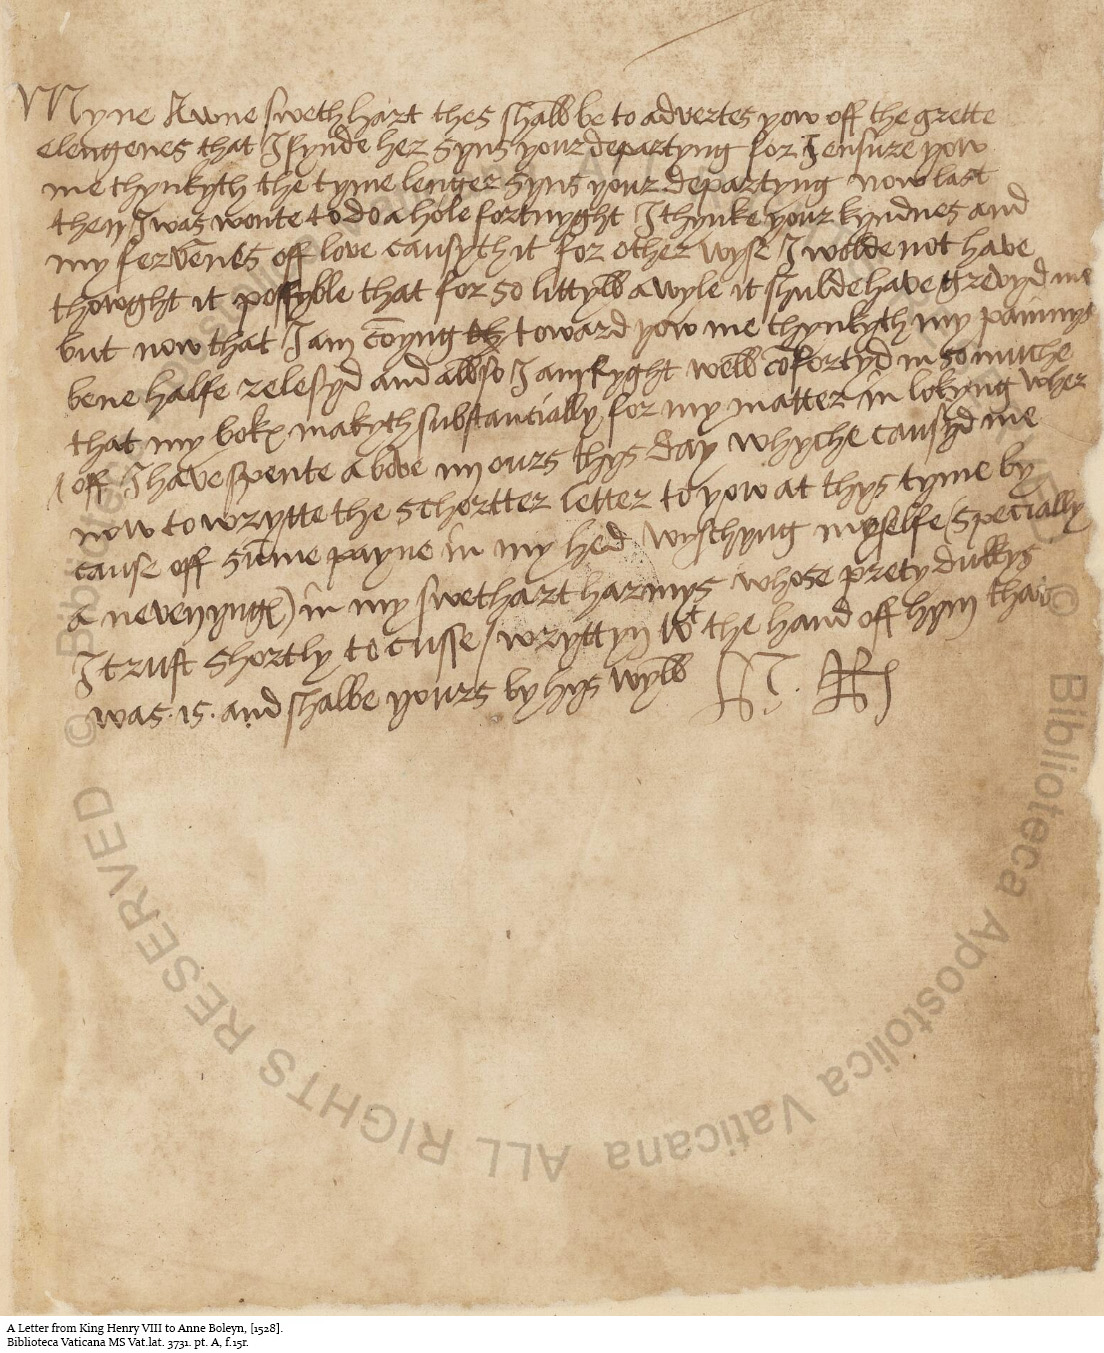 Myne Awne swethhart thes shall be to advertes yow off the grette
elengenes that I fynde her syns your departyng for I ensure yow
me thynkyth the tyme lenger syns your departyng now last
then I was wonte to do a hole fortnyght I thynke your kyndnes and
my fervēnes off love causyth it for other wyse I wolde not have
thowght it possyble that for so littyll a wyle it shulde have grevyd me
but now that I am cōyng toward yow me thynkyth my painnys
bene halfe relesyd and allso I am ryght well cōfortyd in so muche
that my bokes makyth substancially for my matter in lokyng wher
off I have spente above iiij ours thys day whyche causyd me
now to wrytte the schortter letter to yow at thys tyme by
cause off sūme payne in my hed / wyschyng myselfe (specially
a nevenynge) in my swethart harmys whose prety dukkys
I trust shortly to cusse / wryttyn wt the hand off hym that
was . is . and shalbe yours by hys wyll H. R
© Biblioteca Apostolica Vaticana ALL RIGHTS RESERVED
A Letter from King Henry VIII to Anne Boleyn, [1528].
Biblioteca Vaticana MS Vat.lat. 3731. pt. A, f.15r.